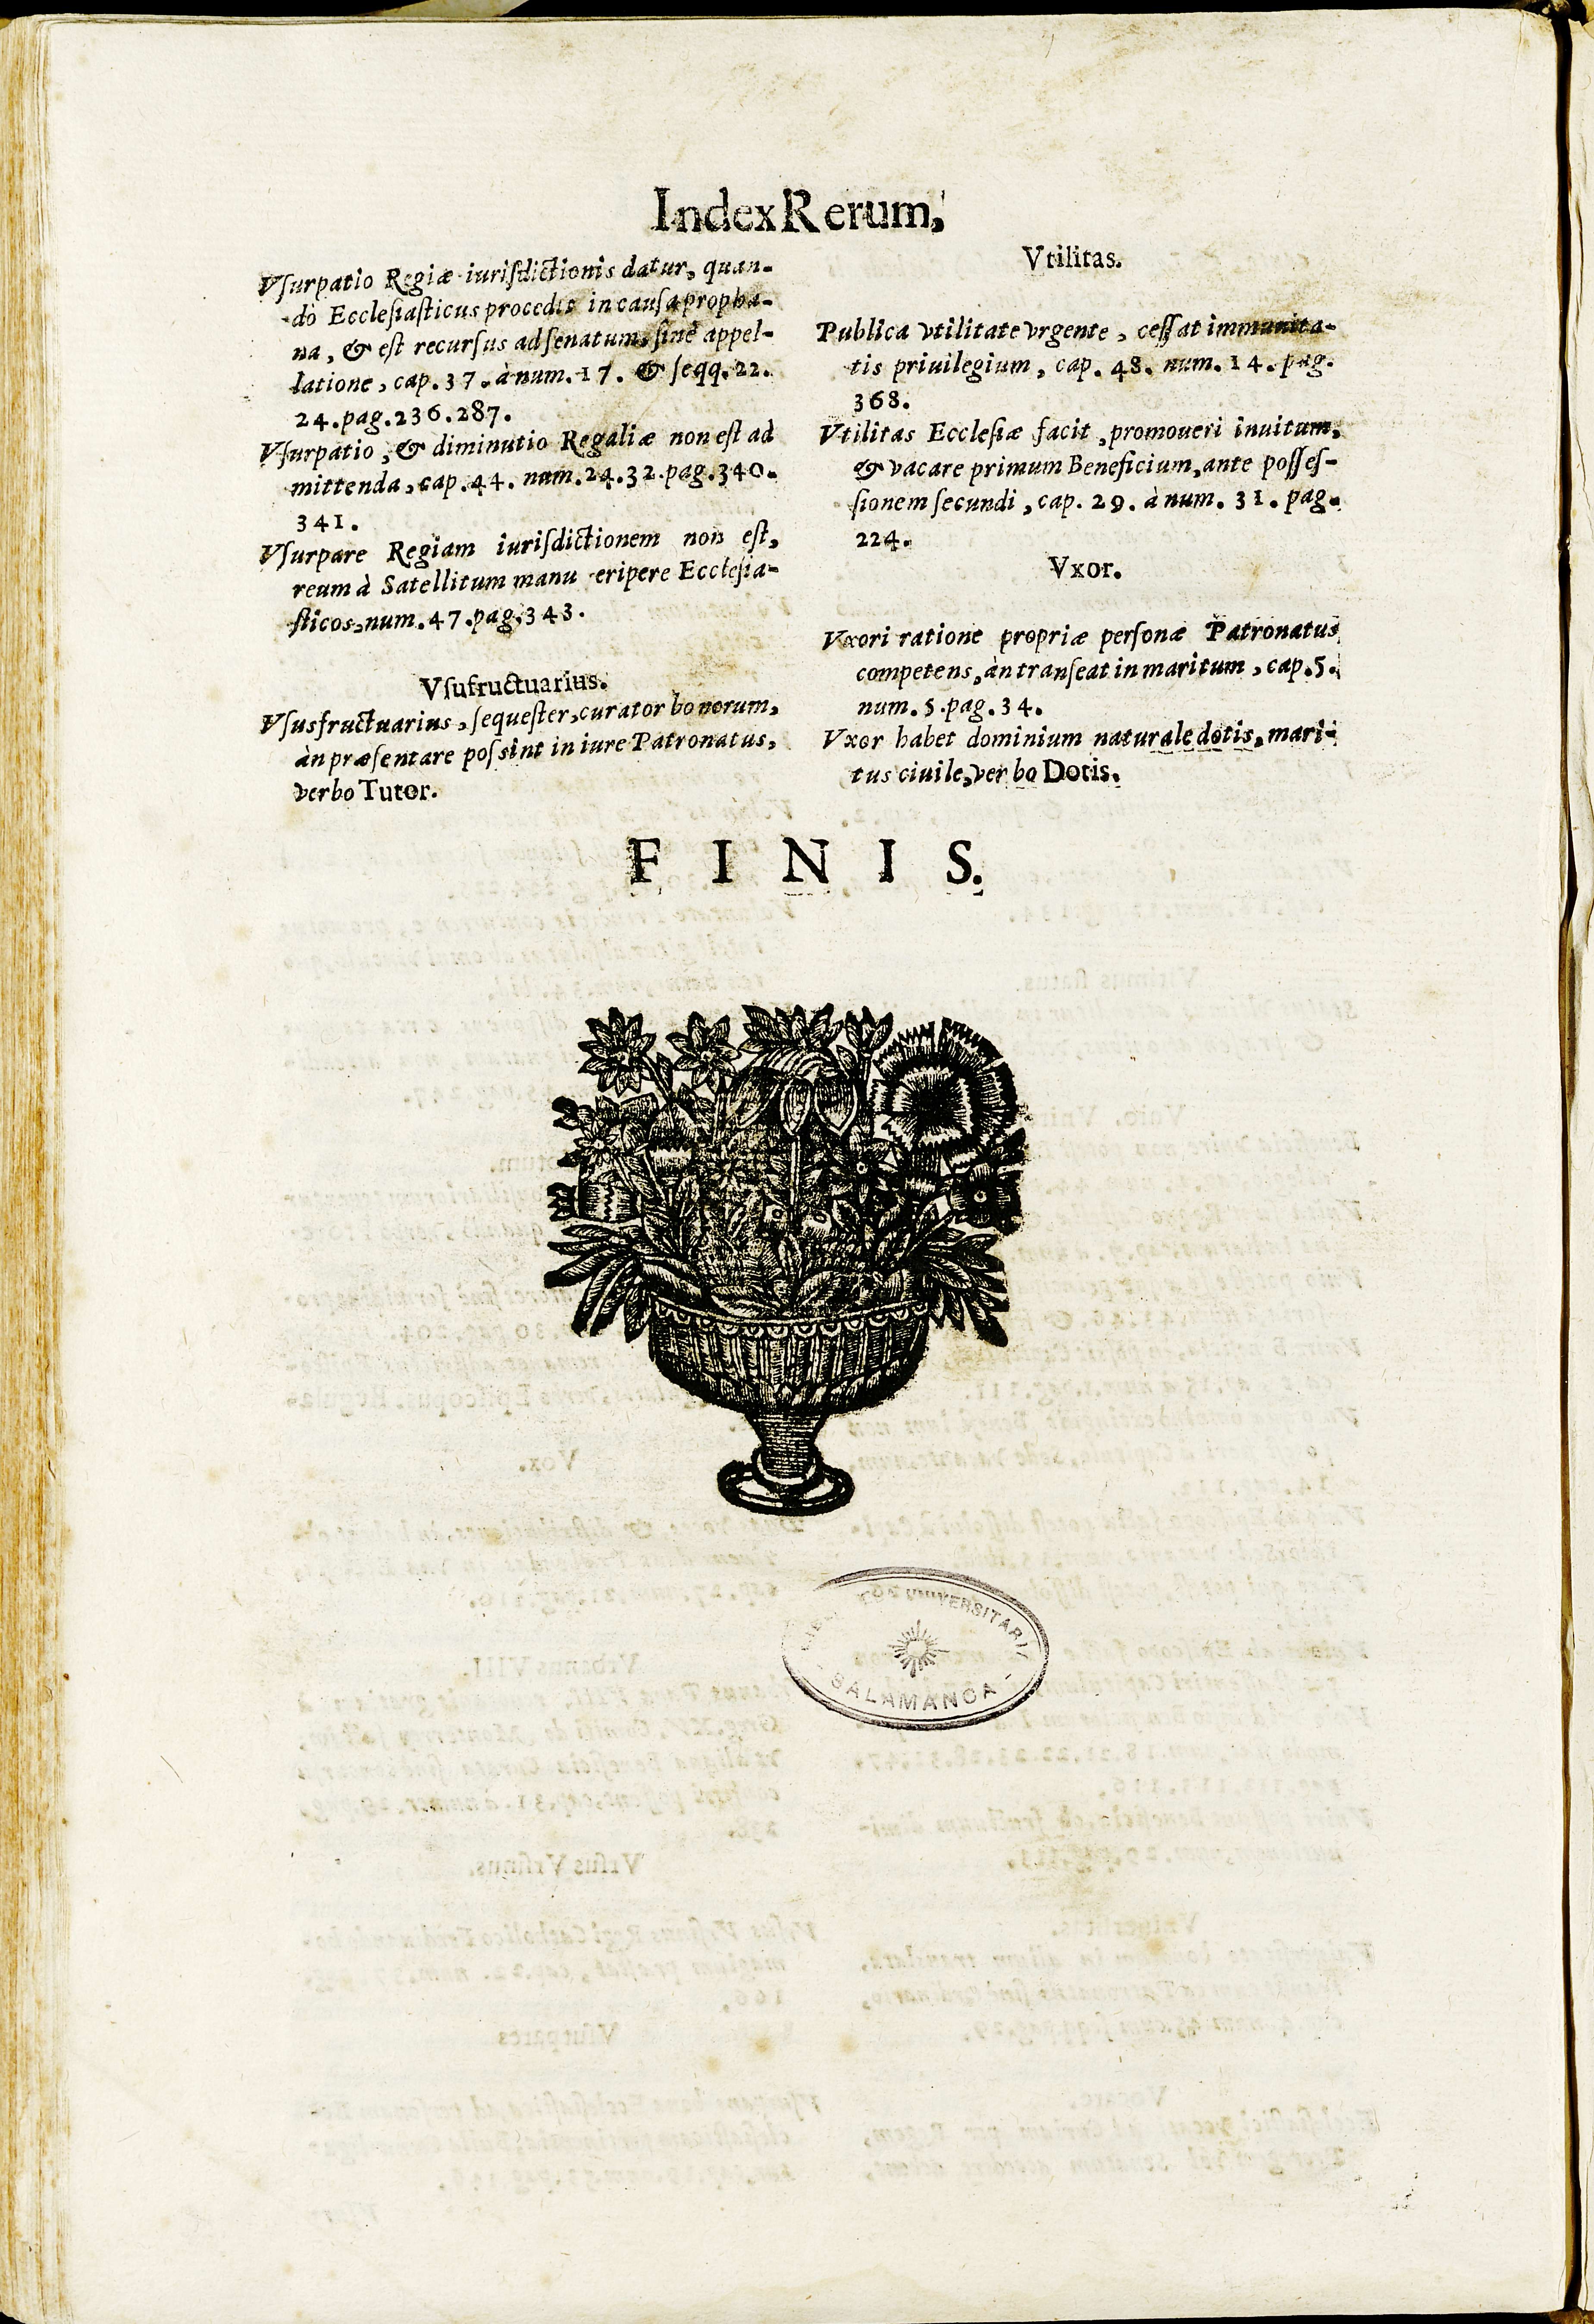 Index Rerum,
Vſurpatio Regiæ iuriſdictionis datur, quan-
dò Eccleſiaſticus procedit in cauſa propha-
na, & est recurſus ad ſenatum, ſinè appel-
latione, cap. 37. à num. 17. & ſeqq. 22.
24. pag. 236. 287.
Vſurpatio, & diminutio Regaliæ non est ad
mittenda, cap. 44. num. 24. 32. pag. 340.
341.
Vſurpare Regiam iuriſdictionem non est,
reum à Satellitum manu eripere Eccleſia-
ſticos, num. 47. pag. 343.
Vſufructuarius.
Vſusfructuarius, ſequeſter, curator bonorum,
àn præſentare poſsint in iure Patronatus,
verbo Tutor.
Vtilitas.
Publica vtilitate vrgente, ceſſat immunita-
tis priuilegium, cap. 48. num. 14. pag.
368.
Vtilitas Eccleſiæ facit, promoueri inuitum,
& vacare primum Beneficium, ante poſſeſ-
ſionem ſecundi, cap. 29. à num. 31. pag.
224.
Vxor.
Vxori ratione propriæ perſonæ Patronatus
competens, àn tranſeat in maritum, cap. 5.
num. 5. pag. 34.
Vxor habet dominium naturale dotis, mari-
tus ciuile, verbo Dotis.
F I N I S.
UNIVERSITARII
SALAMANCA